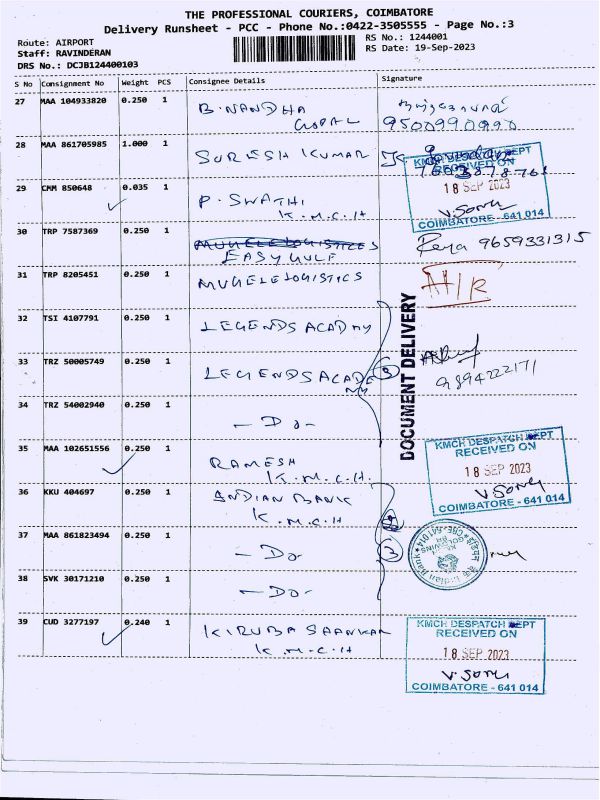 THE PROFESSIONAL COURIERS, COIMBATORE
Delivery Runsheet - PCC - Phone No.:0422-3505555 - Page No.:3
Route: AIRPORT RS No.: 1244001
Staff: RAVINDERAN RS Date: 19-Sep-2023
DRS No.: DCJB124400103
S No Consignment No Weight PCS Consignee Details Signature
27 MAA 104933820 0.250 1 B. NANDHA
GOPAL 9500990990
28 MAA 861705985 1.000 1 SURESH KUMAR
KMCH DESPATCH DEPT
RECEIVED ON
18 SEP 2023
COIMBATORE - 641 014
29 CMM 850648 0.035 1 P. SWATHI
K.M.C.H
30 TRP 7587369 0.250 1 MUGELELOGISTICES
EASYGULF 9659331315
31 TRP 8205451 0.250 1 MUGELELOGISTICS
32 TSI 4107791 0.250 1 LEGENDS ACADMY
DOCUMENT DELIVERY
33 TRZ 50005749 0.250 1 LEGENDS ACADE
MY 3 9894222171
34 TRZ 54002940 0.250 1 - Do -
35 MAA 102651556 0.250 1 RAMESH
K.M.C.H.
KMCH DESPATCH DEPT
RECEIVED ON
18 SEP 2023
COIMBATORE - 641 014
36 KKU 404697 0.250 1 INDIAN BANK
K.M.C.H
37 MAA 861823494 0.250 1 - Do - 3
38 SVK 30171210 0.250 1 - Do -
39 CUD 3277197 0.240 1 KIRUBA SAANKAR
K.M.C.H
KMCH DESPATCH DEPT
RECEIVED ON
18 SEP 2023
COIMBATORE - 641 014